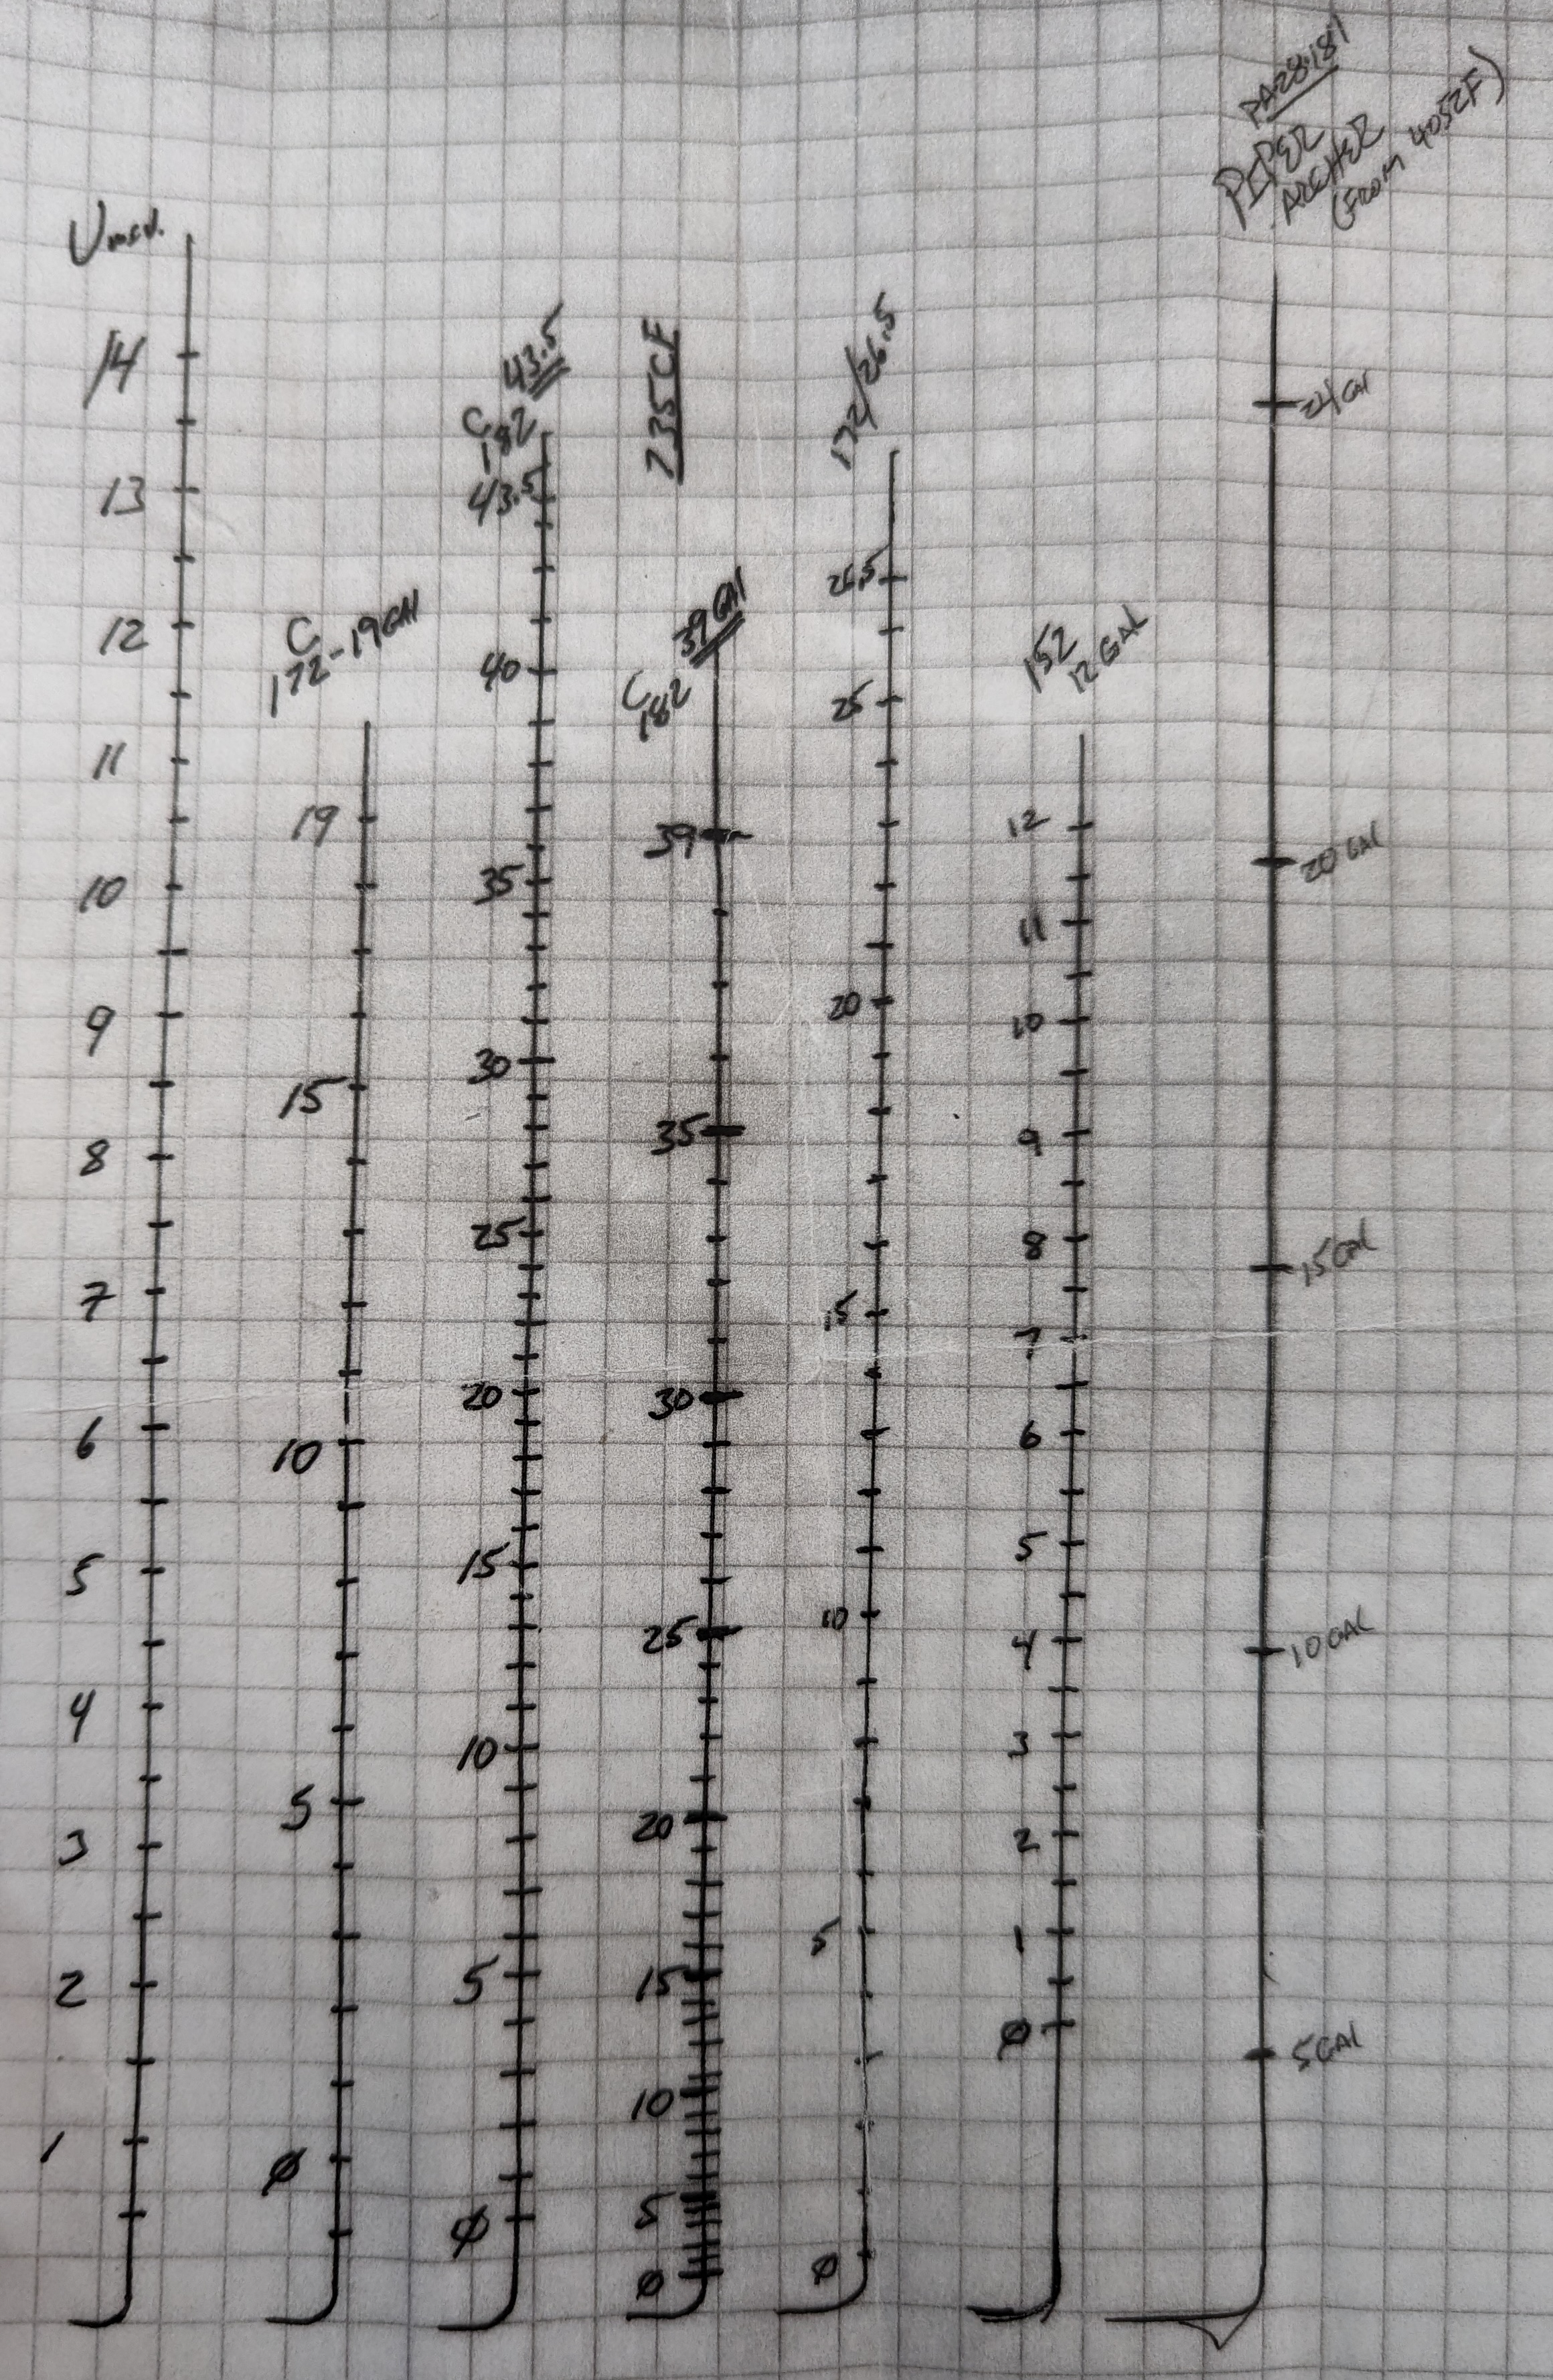 PA28-181
PIPER
ARCHER
(FROM 4052F)
Univ.
14
13
12
11
10
9
8
7
6
5
4
3
2
1
C
172-19GAL
19
15
10
5
Ø
43.5
C
182
43.5
40
35
30
25
20
15
10
5
Ø
235CF
39GAL
C
182
39
35
30
25
20
15
10
5
Ø
172/26.5
26.5
25
20
15
10
5
Ø
152
12 GAL
12
11
10
9
8
7
6
5
4
3
2
1
Ø
24 GAL
20 GAL
15 GAL
10 GAL
5 GAL